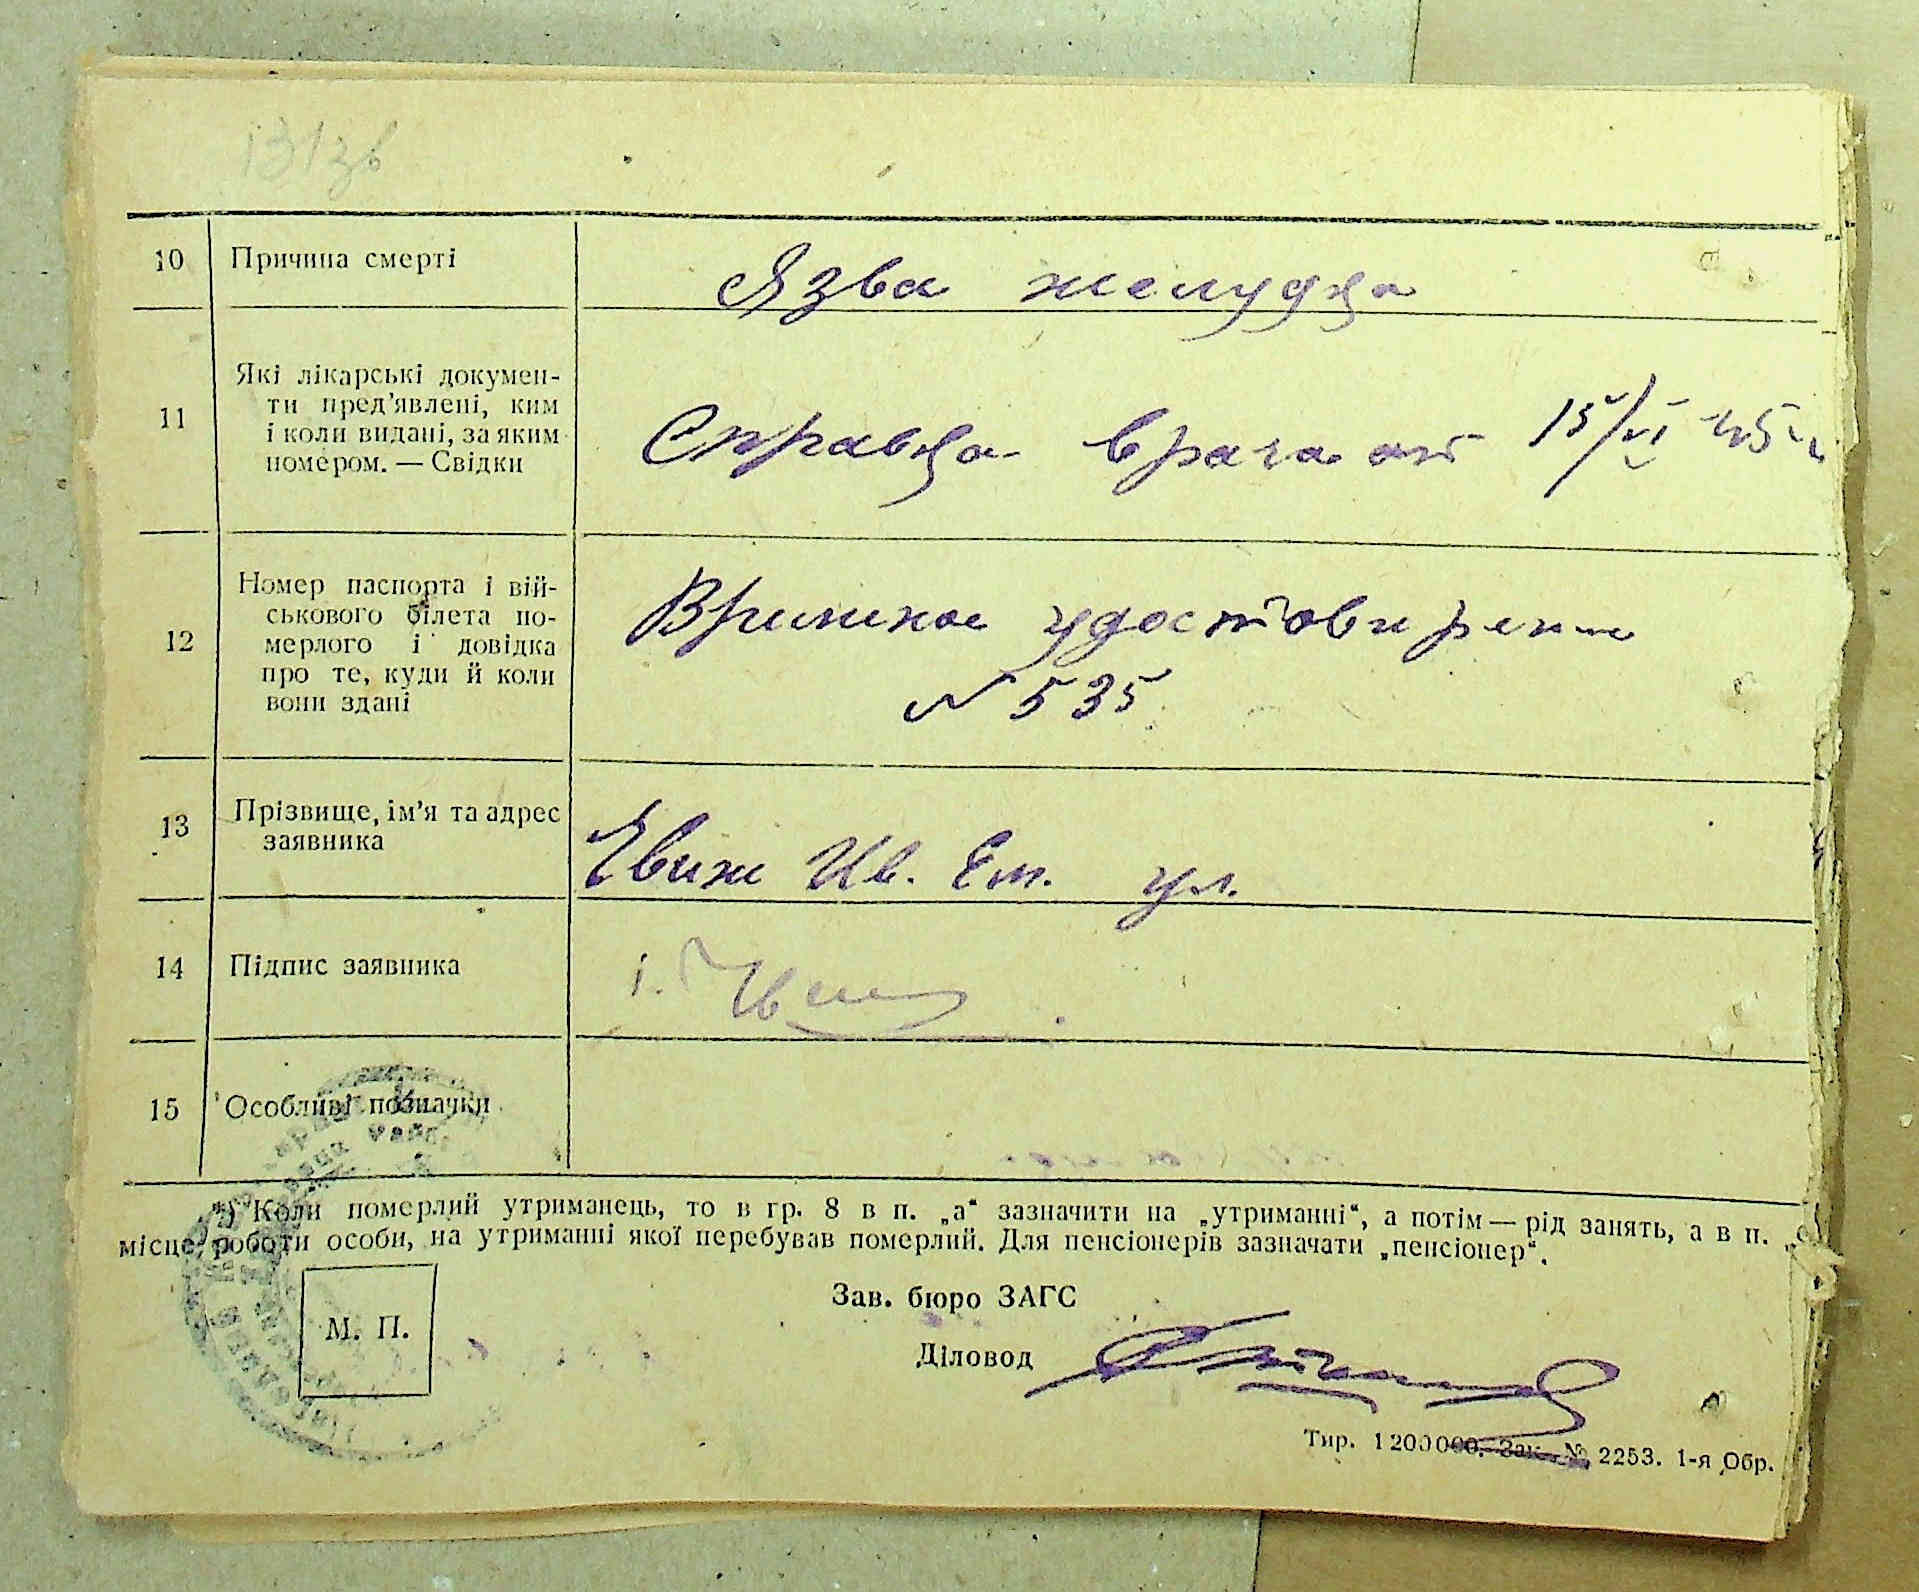 10 Причина смерті Язва желудка
11 Які лікарські докумен-
ти пред'явлені, ким
і коли видані, за яким
номером. — Свідки
Справка врача от 15/VI 45 г.
12 Номер паспорта і вій-
ськового білета по-
мерлого і довідка
про те, куди й коли
вони здані
удостовирение
№ 535
13 Прізвище, ім'я та адрес
заявника
Ив. Ем. ул.
14 Підпис заявника
15 Особливі позначки
*) Коли померлий утриманець, то в гр. 8 в п. „а“ зазначити на „утриманні“, а потім — рід занять, а в п.
місце роботи особи, на утриманні якої перебував померлий. Для пенсіонерів зазначати „пенсіонер“.
М. П.
Зав. бюро ЗАГС
Діловод
Тир. 1200000. Зак. № 2253. 1-я Обр.